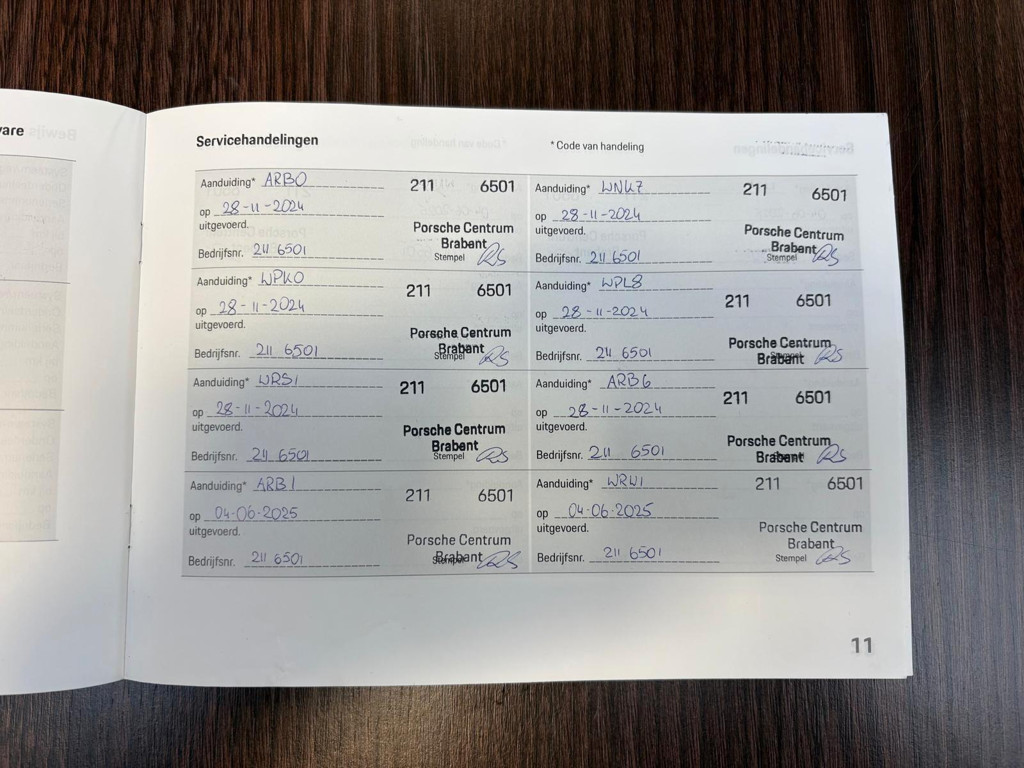 vare
Servicehandelingen
* Code van handeling
Aanduiding* ARB0
211 6501
op 28-11-2024
uitgevoerd.
Porsche Centrum
Brabant
Bedrijfsnr. 211 6501
Stempel
Aanduiding* WNK7
211 6501
op 28-11-2024
uitgevoerd.
Porsche Centrum
Brabant
Bedrijfsnr. 211 6501
Stempel
Aanduiding* WPK0
211 6501
op 28-11-2024
uitgevoerd.
Porsche Centrum
Brabant
Bedrijfsnr. 211 6501
Stempel
Aanduiding* WPL8
211 6501
op 28-11-2024
uitgevoerd.
Porsche Centrum
Brabant
Bedrijfsnr. 211 6501
Stempel
Aanduiding* WRS1
211 6501
op 28-11-2024
uitgevoerd.
Porsche Centrum
Brabant
Bedrijfsnr. 211 6501
Stempel
Aanduiding* ARB6
211 6501
op 28-11-2024
uitgevoerd.
Porsche Centrum
Brabant
Bedrijfsnr. 211 6501
Stempel
Aanduiding* ARB1
211 6501
op 04-06-2025
uitgevoerd.
Porsche Centrum
Brabant
Bedrijfsnr. 211 6501
Stempel
Aanduiding* WRW1
211 6501
op 04-06-2025
uitgevoerd.
Porsche Centrum
Brabant
Bedrijfsnr. 211 6501
Stempel
11